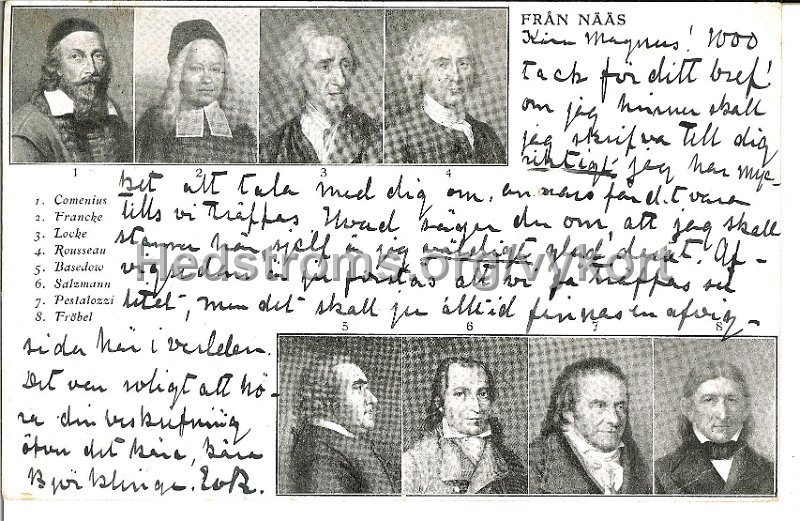 FRÅN NÄÄS
Kära Magnus! 1000
tack för ditt bref!
om jag hinner skall
jag skrifva till dig
riktigt jag har myc-
1 2 3 4
ket att tala med dig om, annars får det vara
tills vi träffas Hvad säger du om, att jag skall
stanna här själf är jag väldigt glad deråt. Af-
vigsidan är ju förstås att vi få träffas så
litet, men det skall ju alltid finnas en afvig-
1. Comenius
2. Francke
3. Locke
4. Rousseau
5. Basedow
6. Salzmann
7. Pestalozzi
8. Fröbel
Hedströms.org/vykort
5 6 7 8
sida här i verlden.
Det var roligt att hö-
ra din beskrifning
öfver det kära, kära
Björklinge.